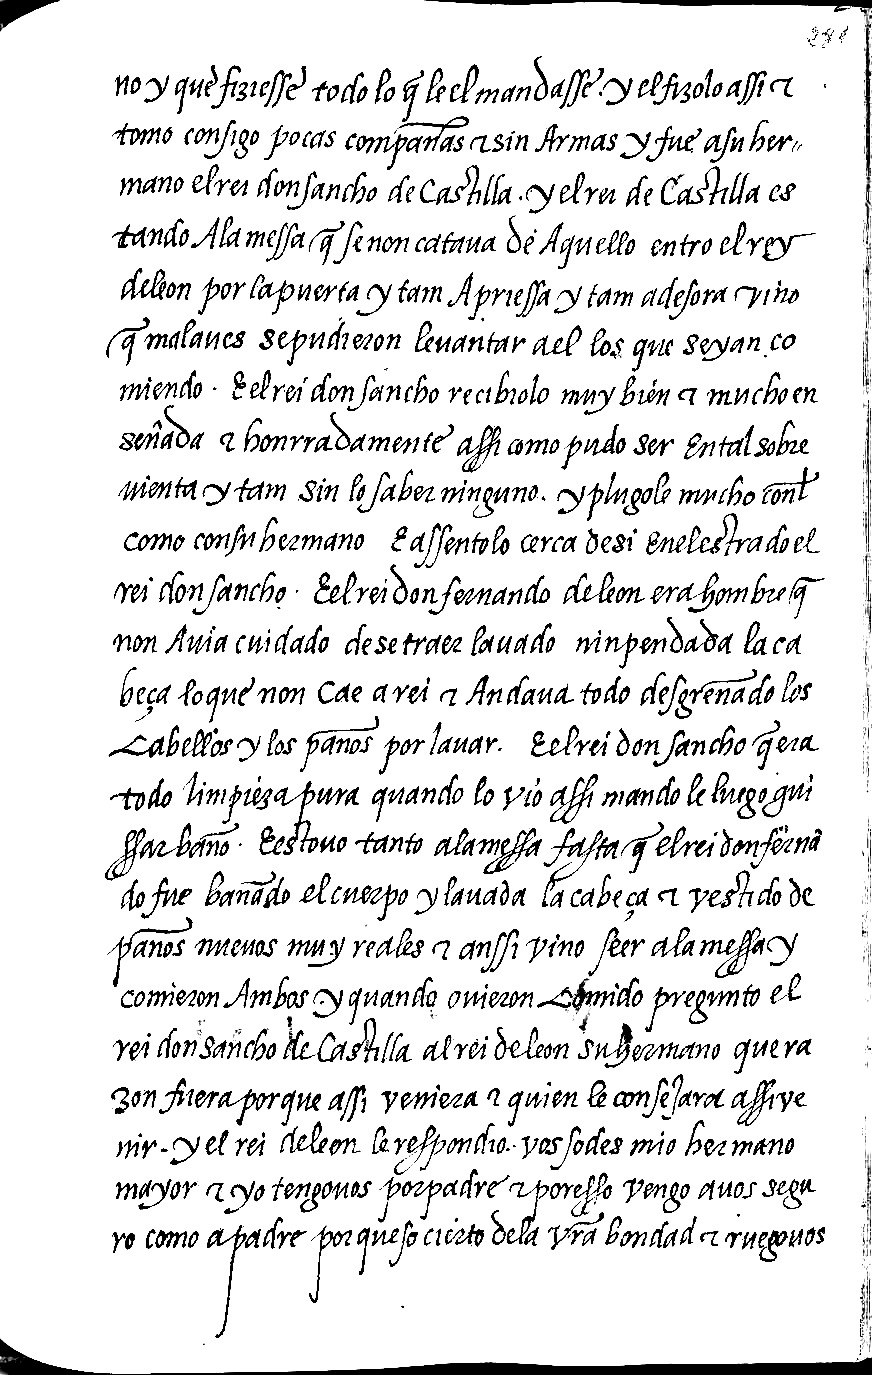 no y que fiziesse todo lo q̃ le el mandasse. y el fizolo assi ⁊
tomo consigo pocas compan̄as ⁊ sin Armas y fue a su her-
mano el rei don sancho de Castilla. y el rei de Castilla es
tando A la messa q̃ se non cataua de Aquello entro el rey
de leon por la puerta y tam A priessa y tam adesora vino
q̃ malaues se pudieron leuantar a el los que seyan co
miendo. E el rei don sancho recibiolo muy bien ⁊ mucho en
sen̄ada ⁊ honrradamente assi como pudo ser En tal sobre
uienta y tam sin lo saber ninguno. y plugole mucho con̄l
como con su hermano E assentolo cerca de si En el estrado el
rei don sancho. E el rei don fernando de leon era hombre q̃
non Auia cuidado de se traer lauado nin pendada la ca
beça lo que non Cae a rei ⁊ Andaua todo desgren̄ado los
Cabellos y los pan̄os por lauar. E el rei don sancho q̃ era
todo limpieza pura quando lo vio assi mando le luego gui
ssar ban̄o. E estouo tanto a la messa fasta q̃ el rei don fernā
do fue ban̄ado el cuerpo y lauada la cabeça ⁊ vestido de
pan̄os nueuos muy reales ⁊ anssi vino seer a la messa y
comieron Ambos. y quando ouieron Comido pregunto el
rei don sancho de Castilla al rei de leon su hermano que ra
zon fuera porque assi veniera ⁊ quien le consejara assi ve
nir. y el rei de leon le respondio. vos sodes mio hermano
mayor ⁊ yo tengouos por padre ⁊ por esso vengo a uos segu
ro como a padre porque so cierto de la vr̄a bondad ⁊ ruegouos